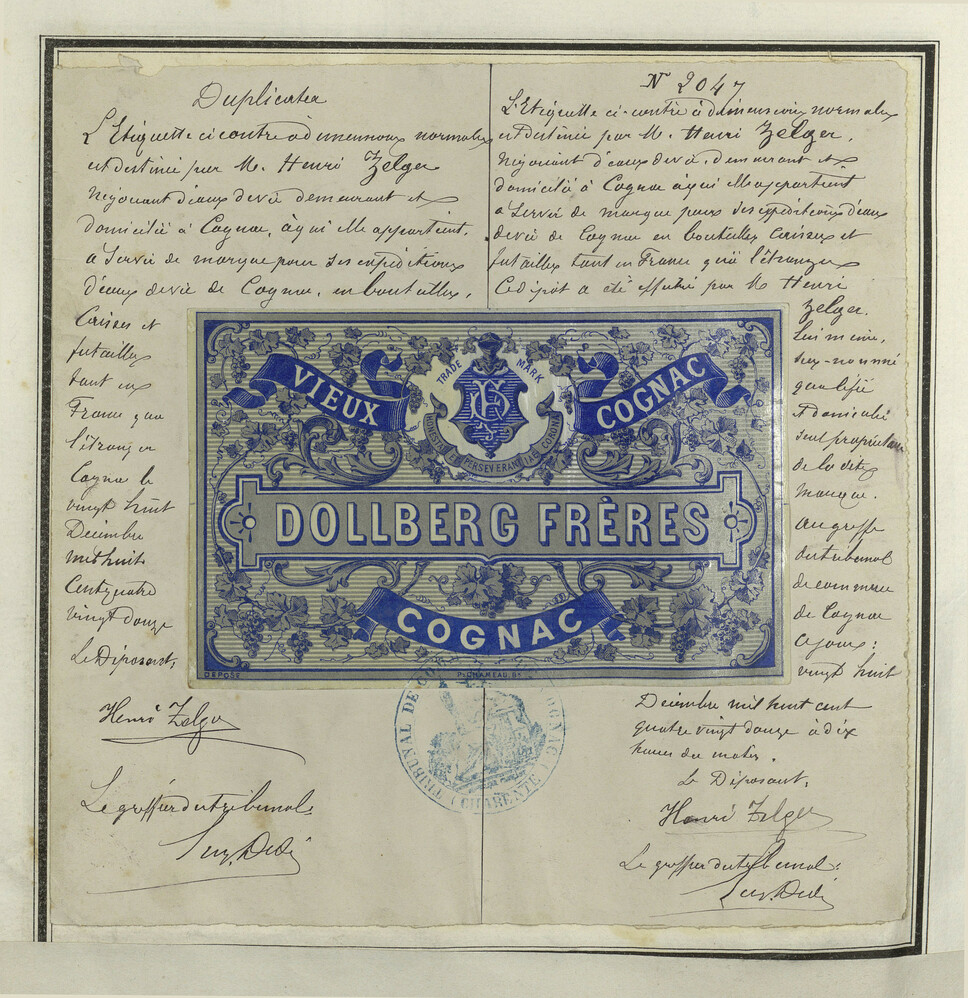 Duplicata
L'Etiquette ci contre à dimensions normales
est destinée par M. Henri Zelger
Négociant d'eaux de vie demeurant et
domicilié à Cognac, à qui elle appartient,
à servir de marque pour ses expéditions
d'eaux de vie de Cognac, en bouteilles,
Caisses et
futailles
tant en
France qu'à
l'étranger
Cognac le
vingt huit
Décembre
mil huit
Cent quatre
vingt douze
Le Déposant,
Henri Zelger
Le greffier du tribunal:
N° 2047
L'Etiquette ci-contre à dimensions normales
est destinée par M. Henri Zelger,
Négociant d'eaux de vie, demeurant et
domicilié à Cognac à qui elle appartient
à servir de marque pour ses expéditions d'eaux
de vie de Cognac en bouteilles Caisses et
futailles tant en France qu'à l'étranger
Ce dépôt a été effectué par M Henri
Zelger.
lui même,
sus-nommé
qualifié
et domicilié
seul propriétaire
de la dite
marque.
au greffe
du tribunal
de commerce
de Cognac
ce jour:
vingt huit
Décembre mil huit cent
quatre vingt douze à dix
heures du matin.
Le Déposant,
Henri Zelger
Le greffier du tribunal:
VIEUX
TRADE MARK
COGNAC
PERSEVERANTIAE CORONA
DOLLBERG FRÈRES
COGNAC
DÉPOSÉ
TRIBUNAL DE COGNAC (CHARENTE)